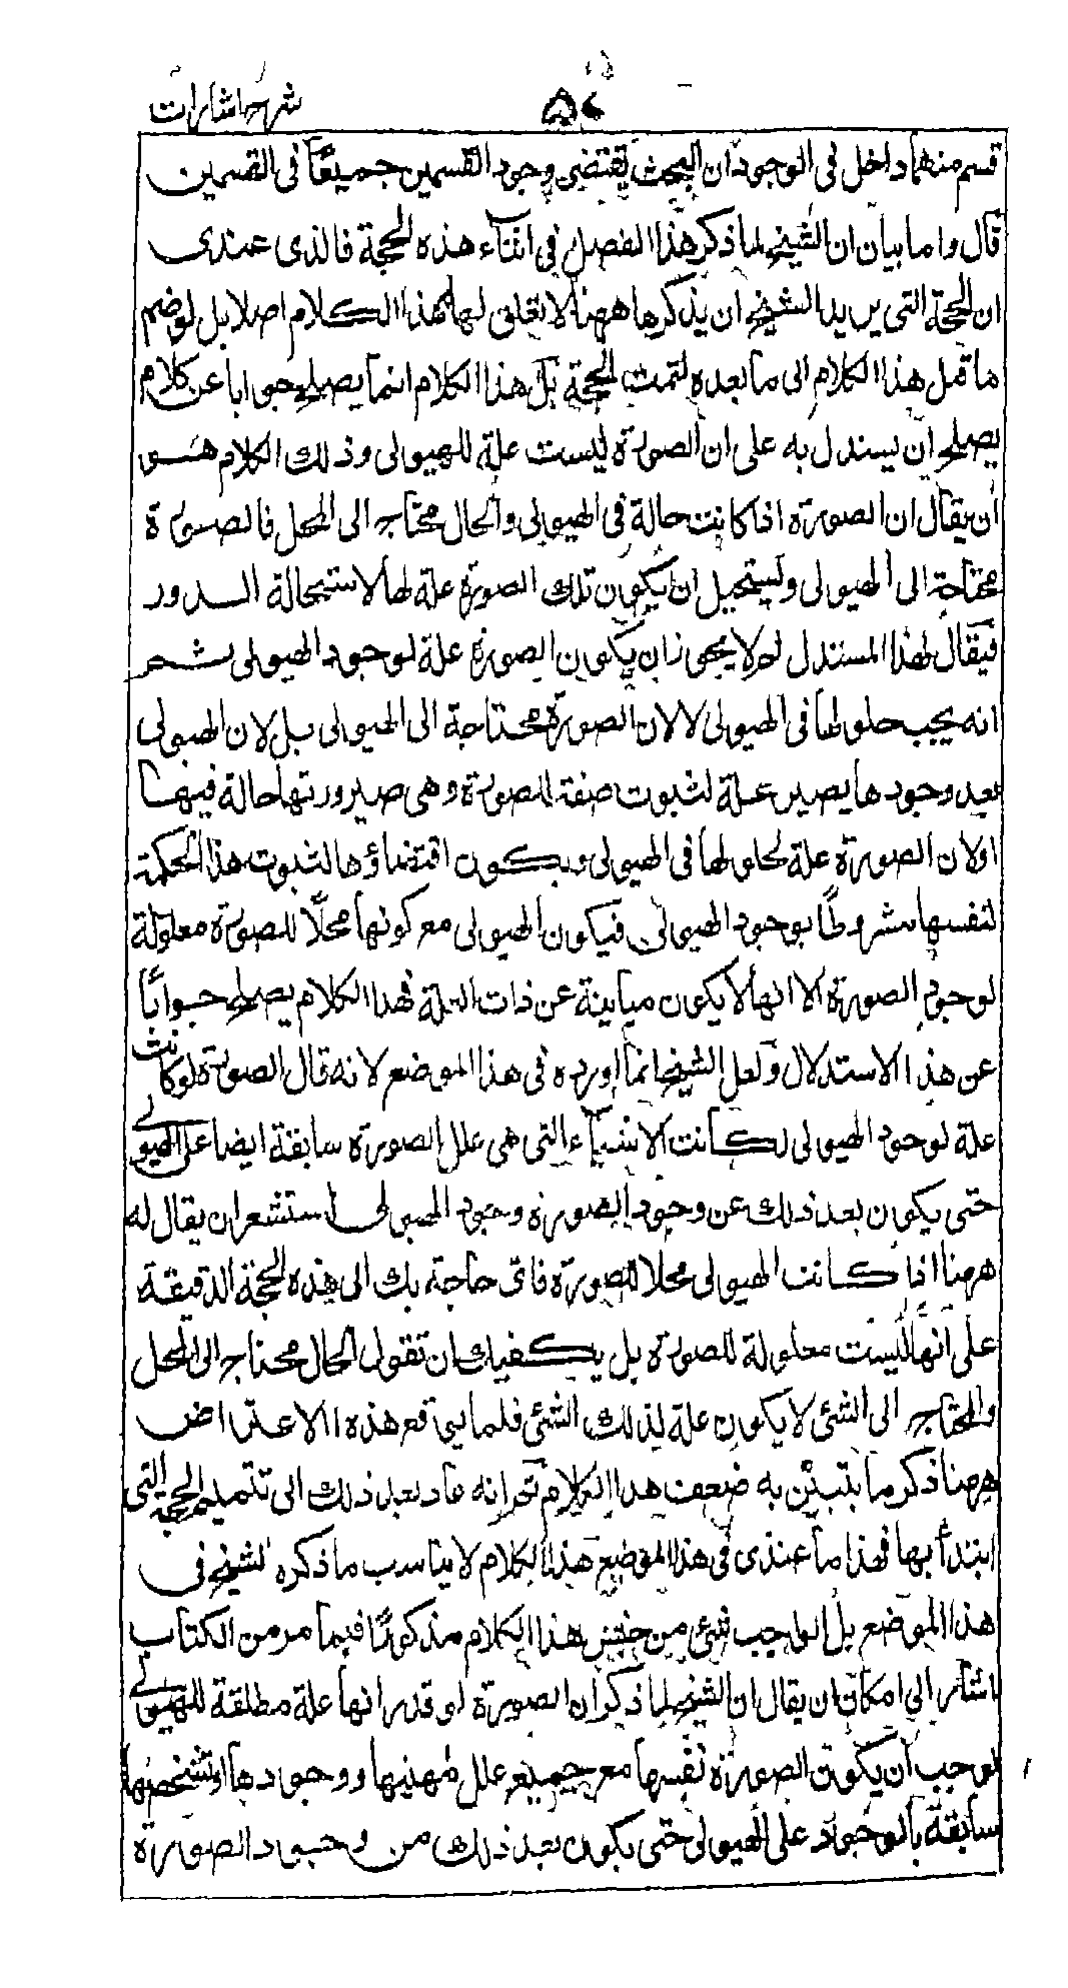 شرح اشارات
۵۶
قسم منهما داخل فى الوجود ان البحث يقتضى وجود القسمين جميعًا فى القسمين
قال واما بيان ان الشيخ لما ذكر هذا الفصل فى اثناء هذه الحجة فالذى عندى
ان الحجة التى يريد الشيخ ان يذكرها ههنا لا تعلق لها بهذا الكلام اصلا بل لو ضم
ما قبل هذا الكلام الى ما بعده لتمت الحجة بل هذا الكلام انما يصلح جوابا عن كلام
يصلح ان يستدل به على ان الصورة ليست علة للهيولى وذلك الكلام هو
ان يقال ان الصورة اذا كانت حالة فى الهيولى والحال محتاج الى المحل فالصورة
محتاجة الى الهيولى ويستحيل ان يكون تلك الصورة علة لها لاستحالة الدور
فيقال لهذا المستدل لم لا يجوز ان يكون الصورة علة لوجود الهيولى ثم
انه يجب حلولها فى الهيولى لا لان الصورة محتاجة الى الهيولى بل لان الهيولى
بعد وجودها يصير علة لثبوت صفة للصورة وهى صيرورتها حالة فيها
او لان الصورة علة لحلولها فى الهيولى ويكون اقتضاؤها لثبوت هذا الحكمة
لنفسها مشروطًا بوجود الهيولى فيكون الهيولى مع كونها محلًا للصورة معلولة
لوجود الصورة الا انها لا يكون مباينة عن ذات العلة فهذا الكلام يصلح جوابًا
عن هذا الاستدلال ولعل الشيخ انما اورده فى هذا الموضع لانه قال الصورة لو كانت
علة لوجود الهيولى لكانت الاشياء التى هى علل الصورة سابقة ايضا على الهيولى
حتى يكون بعد ذلك عن وجود الصورة وجود الهيولى استشعر ان يقال له
ههنا اذا كانت الهيولى محلا للصورة فاى حاجة بك الى هذه الحجة الدقيقة
على انها ليست معلولة للصورة بل يكفيك ان تقول الحال محتاج الى المحل
والمحتاج الى الشئ لا يكون علة لذلك الشئ فلما يتوقع هذه الاعتراض
ههنا ذكر ما يتبين به ضعف هذا الكلام ثم انه عاد بعد ذلك الى تتميم الحجة التى
ابتدأ بها فهذا ما عندى فى هذا الموضع هذا الكلام لا يناسب ما ذكره الشيخ فى
هذا الموضع بل الواجب شئ من جنس هذا الكلام مذكورًا فيما مر من الكتاب
اشار الى امكان ان يقال ان الشيخ لما ذكر ان الصورة لو قدر انها علة مطلقة للهيولى
لوجب ان يكون الصورة نفسها مع جميع علل مهيتها ووجودها او تشخصها
سابقة بالوجود على الهيولى حتى يكون بعد ذلك من وجود الصورة